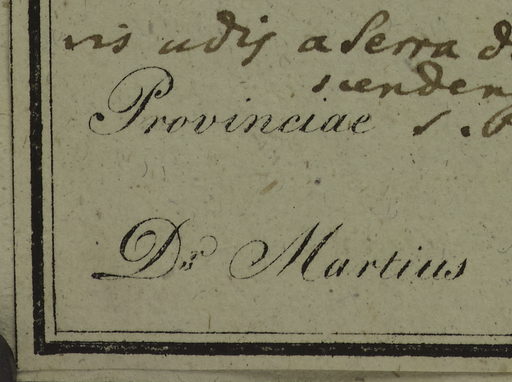 udis a Serra
scenden
Provinciae S.
Dr Martius